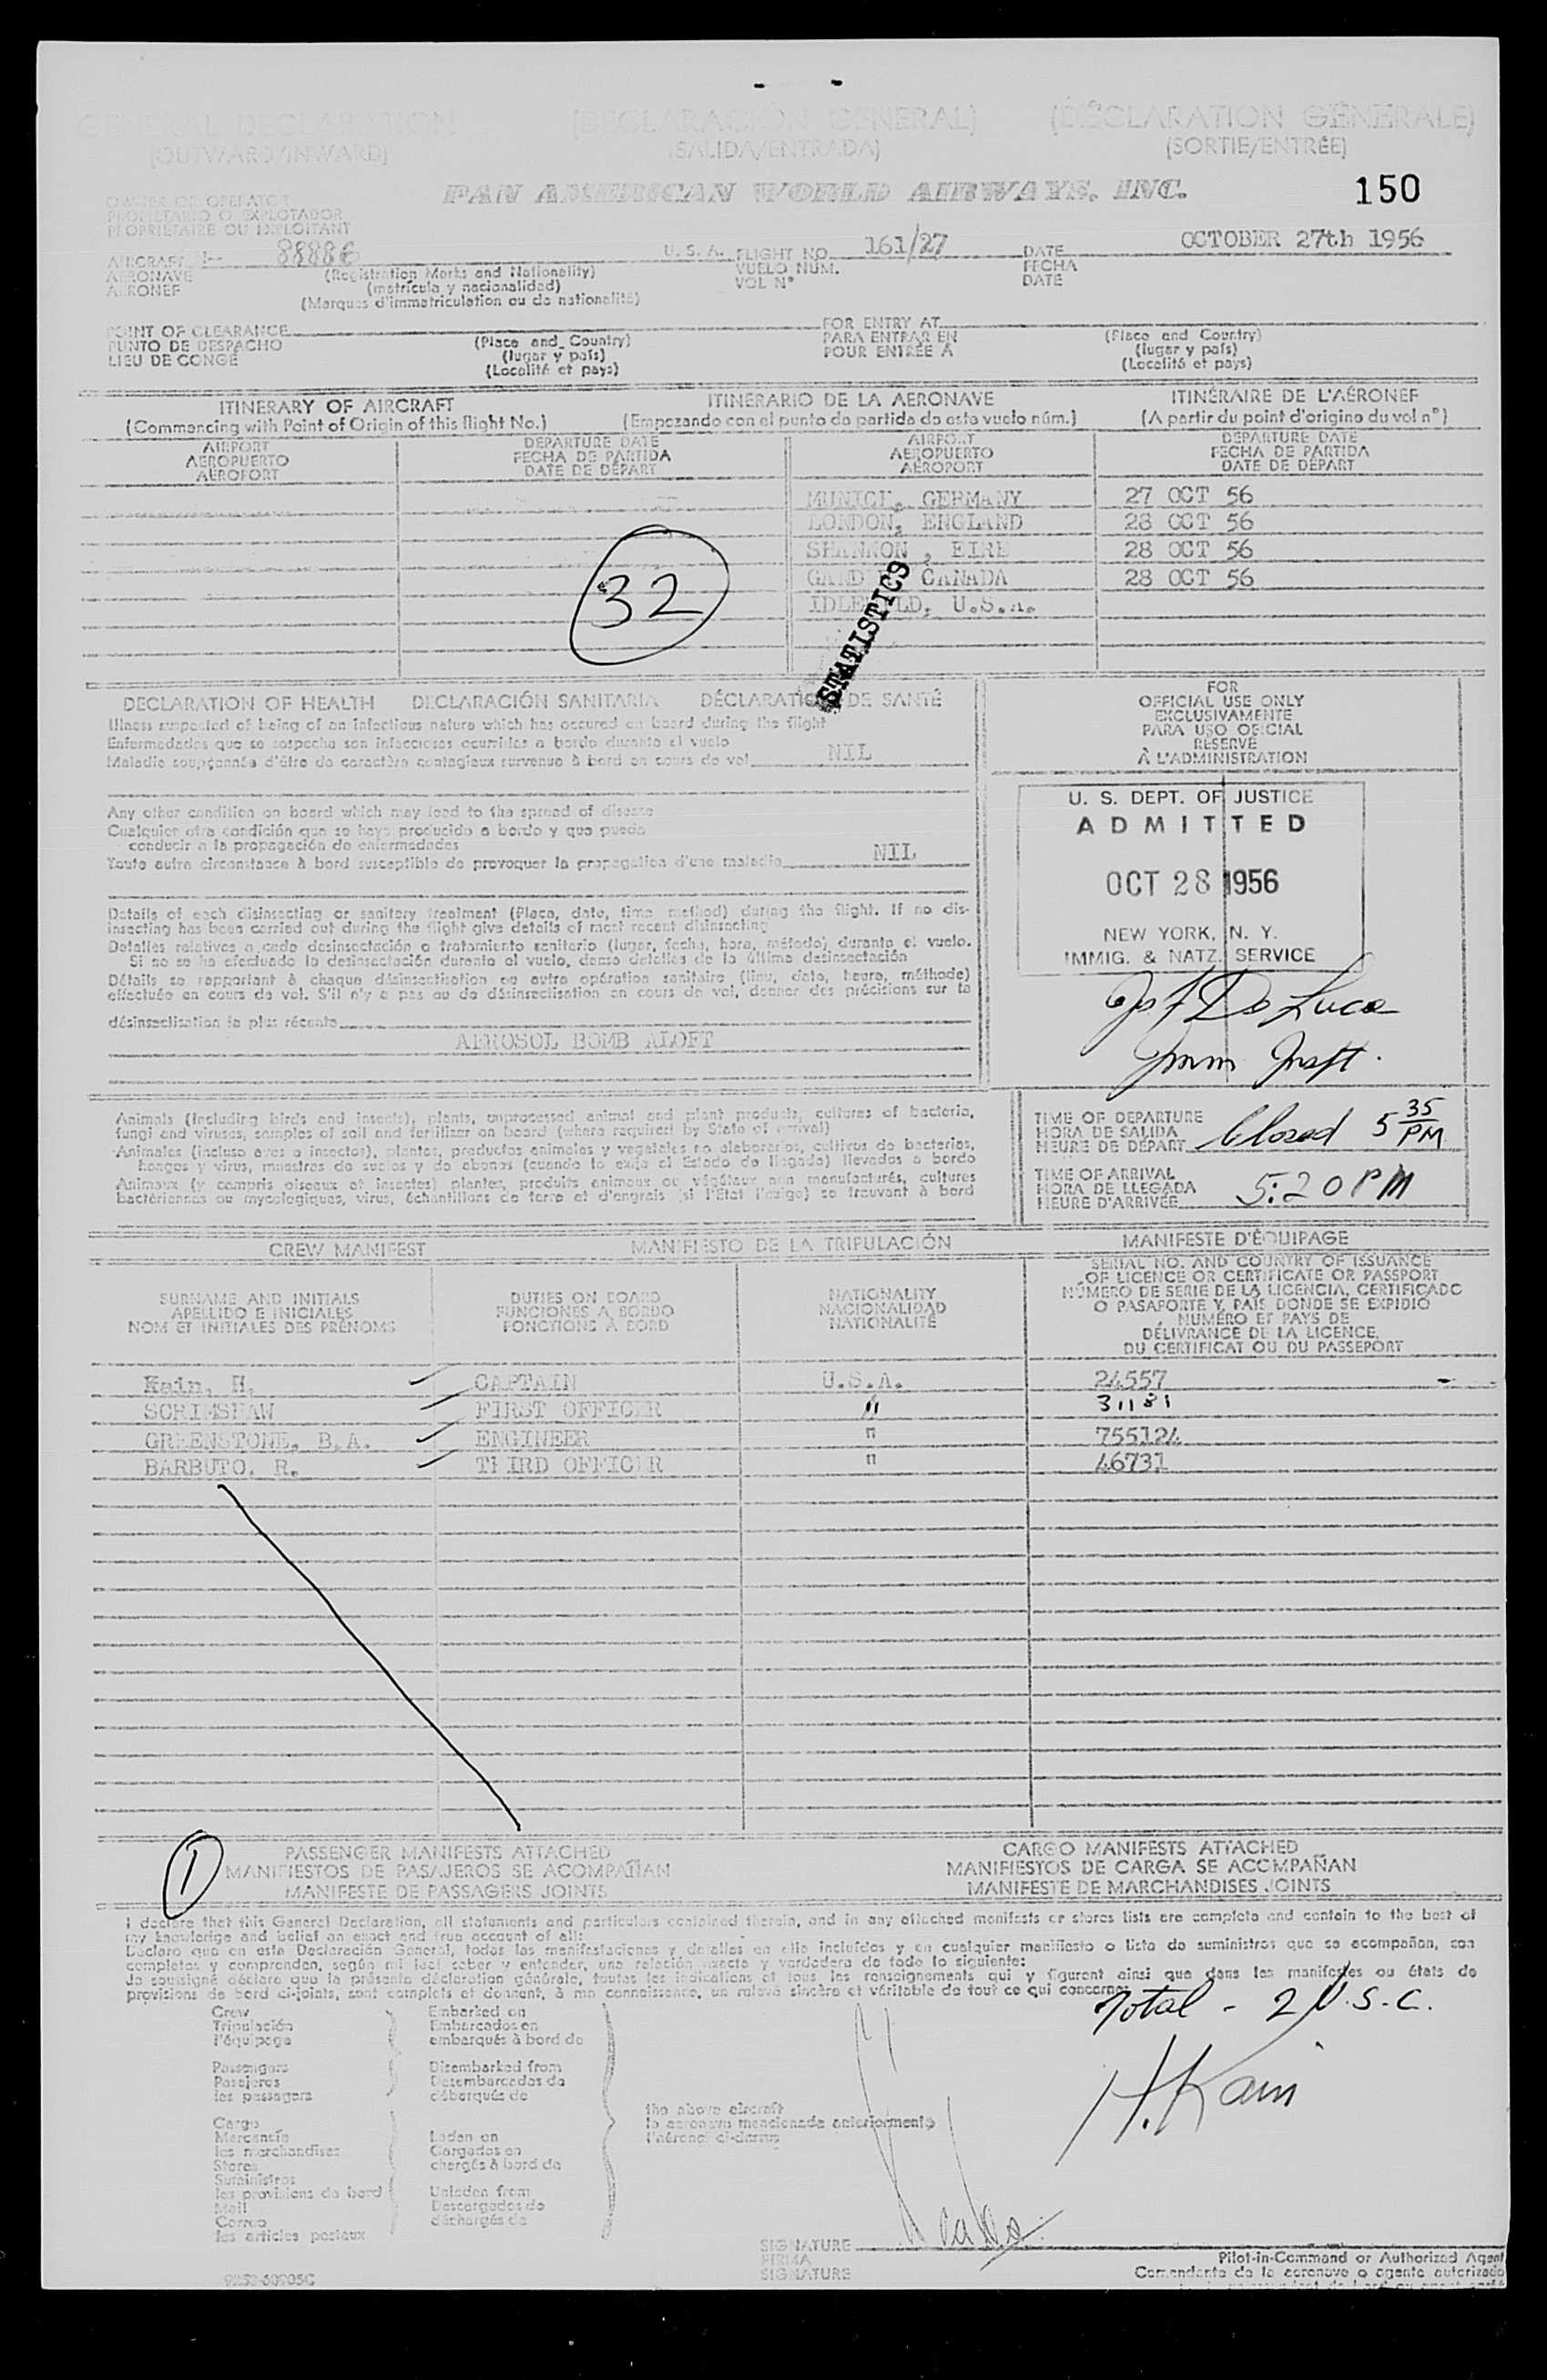 GENERAL DECLARATION (DECLARACIÓN GENERAL) (DÉCLARATION GÉNÉRALE)
(OUTWARD/INWARD) (SALIDA/ENTRADA) (SORTIE/ENTRÉE)
PAN AMERICAN WORLD AIRWAYS, INC. 150
OWNER OR OPERATOR
PROPIETARIO O EXPLOTADOR
PROPRIÉTAIRE OU EXPLOITANT
AIRCRAFT N- 88886 U. S. A. FLIGHT NO. 161/27 DATE OCTOBER 27th 1956
AERONAVE (Registration Marks and Nationality) VUELO NÚM. FECHA
AÉRONEF (matrícula y nacionalidad) VOL N° DATE
(Marques d'immatriculation ou de nationalité)
POINT OF CLEARANCE FOR ENTRY AT
PUNTO DE DESPACHO (Place and Country) PARA ENTRAR EN (Place and Country)
LIEU DE CONGÉ (lugar y país) POUR ENTRÉE À (lugar y país)
(Localité et pays) (Localité et pays)
ITINERARY OF AIRCRAFT ITINERARIO DE LA AERONAVE ITINÉRAIRE DE L'AÉRONEF
(Commencing with Point of Origin of this flight No.) (Empezando con el punto de partida de este vuelo núm.) (A partir du point d'origine du vol n°)
AIRPORT DEPARTURE DATE AIRPORT DEPARTURE DATE
AEROPUERTO FECHA DE PARTIDA AEROPUERTO FECHA DE PARTIDA
AÉROPORT DATE DE DÉPART AÉROPORT DATE DE DÉPART
MUNICH, GERMANY 27 OCT 56
LONDON, ENGLAND 28 OCT 56
SHANNON, EIRE 28 OCT 56
CANADA 28 OCT 56
32
U.S.A.
STATISTICS
DECLARATION OF HEALTH DECLARACIÓN SANITARIA DÉCLARATION DE SANTÉ
Illness suspected of being of an infectious nature which has occured on board during the flight
Enfermedades que se sospecha son infecciosas ocurridas a bordo durante el vuelo
Maladie soupçonnée d'être de caractère contagieux survenue à bord en cours de vol NIL
Any other condition on board which may lead to the spread of disease
Cualquier otra condición que se haya producido a bordo y que pueda
conducir a la propagación de enfermedades
Toute autre circonstance à bord susceptible de provoquer la propagation d'une maladie NIL
Details of each disinsecting or sanitary treatment (Place, date, time method) during the flight. If no dis-
insecting has been carried out during the flight give details of most recent disinsecting
Detalles relativos a cada desinsectación o tratamiento sanitario (lugar, fecha, hora, método) durante el vuelo.
Si no se ha efectuado la desinsectación durante el vuelo, dense detalles de la última desinsectación
Détails se rapportant à chaque désinsectisation ou autre opération sanitaire (lieu, date, heure, méthode)
effectuée en cours de vol. S'il n'y a pas eu de désinsectisation en cours de vol, donner des précisions sur la
désinsectisation la plus récente
AEROSOL BOMB ALOFT
FOR
OFFICIAL USE ONLY
EXCLUSIVAMENTE
PARA USO OFICIAL
RÉSERVÉ
À L'ADMINISTRATION
U. S. DEPT. OF JUSTICE
ADMITTED
OCT 28 1956
NEW YORK, N. Y.
IMMIG. & NATZ. SERVICE
De Luca
Imm Inspt.
Animals (including birds and insects), plants, unprocessed animal and plant products, cultures of bacteria,
fungi and viruses, samples of soil and fertilizer on board (where required by State of arrival)
Animales (incluso aves e insectos), plantas, productos animales y vegetales no elaborados, cultivos de bacterias,
hongos y virus, muestras de suelos y de abonos (cuando lo exija el Estado de llegada) llevados a bordo
Animaux (y compris oiseaux et insectes) plantes, produits animaux ou végétaux non manufacturés, cultures
bactériennes ou mycologiques, virus, échantillons de terre et d'engrais (si l'État l'exige) se trouvant à bord
TIME OF DEPARTURE
HORA DE SALIDA
HEURE DE DÉPART Closed 5 35 PM
TIME OF ARRIVAL
HORA DE LLEGADA
HEURE D'ARRIVÉE 5:20 PM
CREW MANIFEST MANIFIESTO DE LA TRIPULACIÓN MANIFESTE D'ÉQUIPAGE
SURNAME AND INITIALS
APELLIDO E INICIALES
NOM ET INITIALES DES PRÉNOMS
DUTIES ON BOARD
FUNCIONES A BORDO
FONCTIONS À BORD
NATIONALITY
NACIONALIDAD
NATIONALITÉ
SERIAL NO. AND COUNTRY OF ISSUANCE
OF LICENCE OR CERTIFICATE OR PASSPORT
NÚMERO DE SERIE DE LA LICENCIA, CERTIFICADO
O PASAPORTE Y PAÍS DONDE SE EXPIDIÓ
NUMÉRO ET PAYS DE
DÉLIVRANCE DE LA LICENCE,
DU CERTIFICAT OU DU PASSEPORT
Kain, H. CAPTAIN U.S.A. 24557
SCRIMSHAW FIRST OFFICER " 31181
GREENSTONE, B.A. ENGINEER " 755124
BARBUTO. R. THIRD OFFICER " 46731
1
PASSENGER MANIFESTS ATTACHED CARGO MANIFESTS ATTACHED
MANIFIESTOS DE PASAJEROS SE ACOMPAÑAN MANIFIESTOS DE CARGA SE ACOMPAÑAN
MANIFESTE DE PASSAGERS JOINTS MANIFESTE DE MARCHANDISES JOINTS
I declare that this General Declaration, all statements and particulars contained therein, and in any attached manifests or stores lists are complete and contain to the best of
my knowledge and belief an exact and true account of all:
Declaro que en esta Declaración General, todas las manifestaciones y detalles en ella incluídos y en cualquier manifiesto o lista de suministros que se acompañan, son
completos y comprenden, según mi leal saber y entender, una relación exacta y verdadera de todo lo siguiente:
Je soussigné déclare que la présente déclaration générale, toutes les indications et tous les renseignements qui y figurent ainsi que dans les manifestes ou états de
provisions de bord ci-joints, sont complets et donnent, à ma connaissance, un relevé sincère et véritable de tout ce qui concerne:
Total - 2 U.S.C.
H. Kain
Crew Embarked on
Tripulación Embarcados en
l'équipage embarqués à bord de
Passengers Disembarked from
Pasajeros Desembarcados de
les passagers débarqués de
the above aircraft
la aeronave mencionada anteriormente
l'aéronef ci-dessus
Cargo
Mercancía Laden on
les marchandises Cargados en
Stores chargés à bord de
Suministros
les provisions de bord Unladen from
Mail Descargados de
Correo déchargés de
les articles postaux
SIGNATURE
FIRMA
SIGNATURE
Pilot-in-Command or Authorized Agent
Comandante de la aeronave o agente autorizado